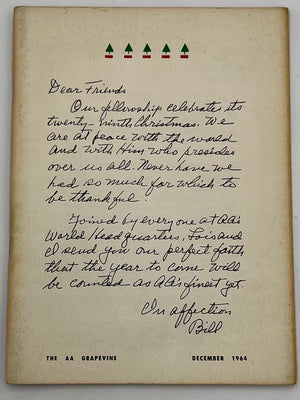 Dear Friends
Our fellowship celebrates its
twenty-ninth Christmas. We
are at peace with the world
and with Him who presides
over us all. Never have we
had so much for which to
be thankful!
Joined by everyone at AA's
World Headquarters, Lois and
I send you our perfect faith
that the year to come will
be counted as AA's finest yet.
In affection
Bill
THE AA GRAPEVINE DECEMBER 1964